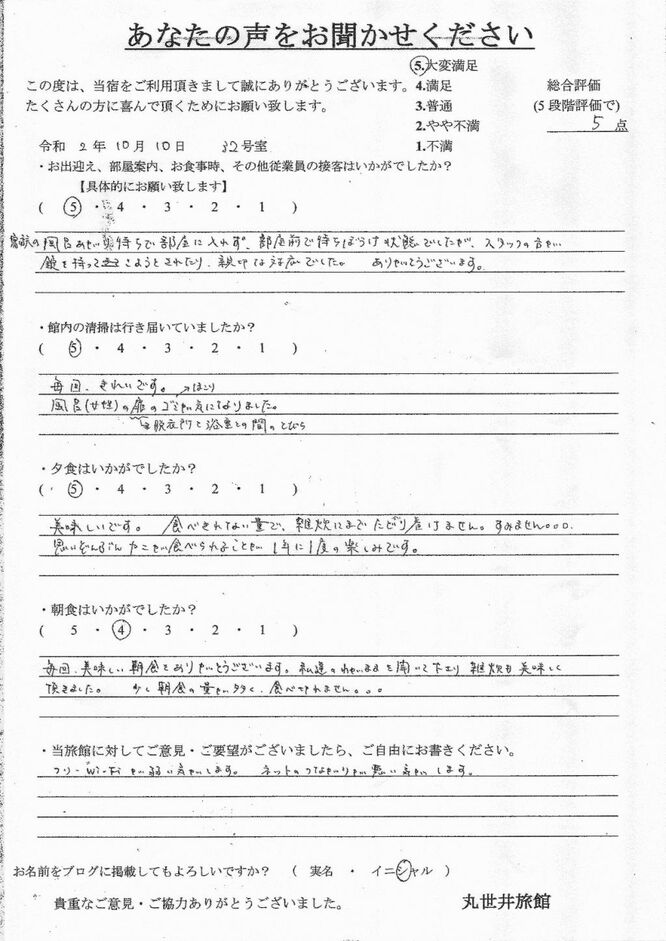 あなたの声をお聞かせください
⑤.大変満足
この度は、当宿をご利用頂きまして誠にありがとうございます。 4.満足 総合評価
たくさんの方に喜んで頂くためにお願い致します。 3.普通 (5段階評価で)
2.やや不満 5 点
令和 2 年 10 月 10 日 32 号室 1.不満
・お出迎え、部屋案内、お食事時、その他従業員の接客はいかがでしたか?
【具体的にお願い致します】
( ⑤ ・ 4 ・ 3 ・ 2 ・ 1 )
家族の風呂あがり待ちで部屋に入れず、部屋前で待ちぼうけ状態でしたが、スタッフの方が
鍵を持ってこようとされたり、親切な対応でした。 ありがとうございます。
・館内の清掃は行き届いていましたか?
( ⑤ ・ 4 ・ 3 ・ 2 ・ 1 )
毎回、きれいです。 →ほこり
風呂(女性)の扉のゴミが気になりました。
脱衣所と浴室との間のとびら
・夕食はいかがでしたか?
( ⑤ ・ 4 ・ 3 ・ 2 ・ 1 )
美味しいです。 食べきれない量で、雑炊にまでたどり着けません。すみません。。。
思いぞんぶんカニが食べられることが1年に1度の楽しみです。
・朝食はいかがでしたか?
( 5 ・ ④ ・ 3 ・ 2 ・ 1 )
毎回、美味しい朝食をありがとうございます。私達のわがままを聞いて下さり雑炊も美味しく
頂きました。 少し朝食の量が多く、食べ切れません。。。
・当旅館に対してご意見・ご要望がございましたら、ご自由にお書きください。
フリーWi-Fiが弱い気がします。 ネットのつながりが悪い気がします。
お名前をブログに掲載してもよろしいですか? ( 実名 ・ イニシャル )
貴重なご意見・ご協力ありがとうございました。 丸世井旅館